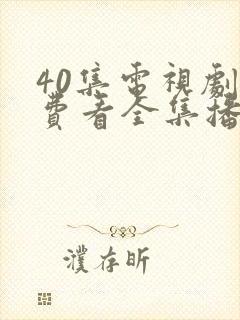 40集电視劇
費看全集播
濮存昕